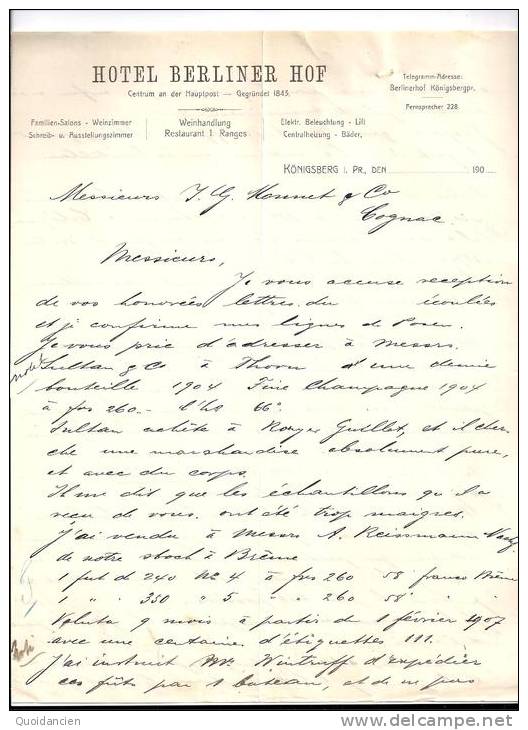 HOTEL BERLINER HOF
Centrum an der Hauptpost — Gegründet 1843.
Telegramm-Adresse:
Berlinerhof Königsbergpr.
Fernsprecher 228.
Familien-Salons - Weinzimmer
Schreib- u. Ausstellungszimmer
Weinhandlung
Restaurant I. Ranges
Elektr. Beleuchtung - Lift
Centralheizung - Bäder.
KÖNIGSBERG I. PR., DEN 190
Messieurs J. G. Monnet & Co
Cognac
Messieurs,
Je vous accuse reception
de vos honorées lettres du écoulées
et je confirme mes lignes de Posen.
Je vous prie d'adresser à Messrs.
noté
Sultan & Co à Thorn une demie
bouteille 1904 Fine Champagne 1904
à frs 260.- l'ho 66°.
Sultan achète à Roger Guillet, et il cher
che une marchandise absolument pure,
et avec du corps.
Il me dit que les échantillons qu'il a
reçu de vous ont été trop maigres.
J'ai vendu à Messrs A. Reissmann
de notre stock à Brême
1 fut de 240 No 4 à frs 260 58° franco Brême
1 " " 350 " 5 " " 260 58° " "
Valuta 9 mois à partir de 1 février 1907
avec une certaine d'étiquettes 111.
J'ai instruit Mr. Wintruff d'expédier
ces fûts par 1 bateau, et de ne pas
Quoidancien
www.delcampe.net